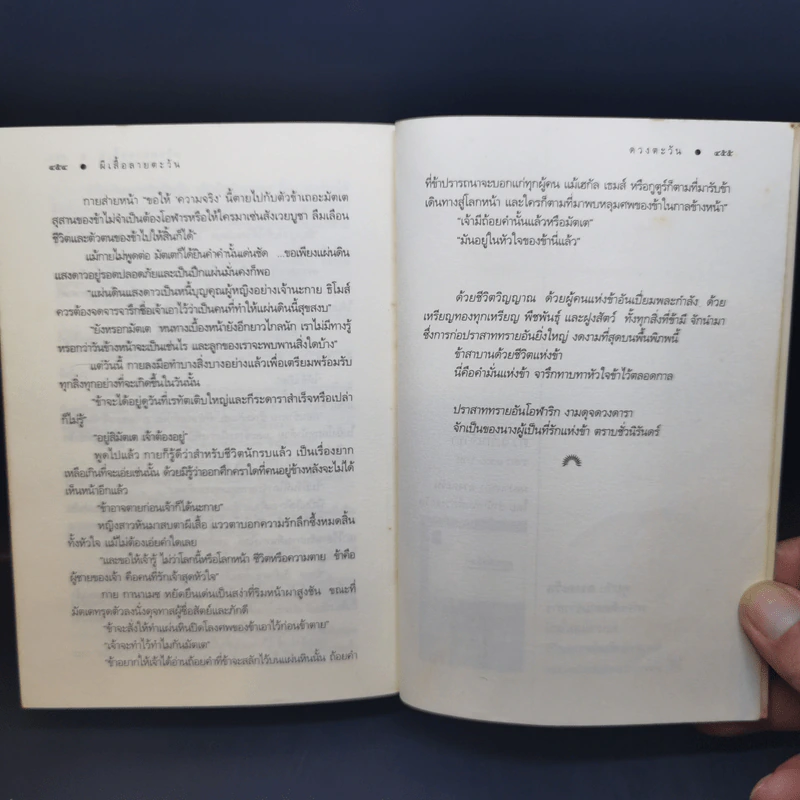 ๔๕๔ ● ผีเสื้อลายตะวัน
กายส่ายหน้า “ขอให้ ‘ความจริง’ นี้ตายไปกับตัวข้าเถอะมัตเต
สุสานของข้าไม่จำเป็นต้องโอฬารหรือให้ใครมาเซ่นสังเวยบูชา ลืมเลือน
ชีวิตและตัวตนของข้าไปให้สิ้นก็ได้”
แม้กายไม่พูดต่อ มัตเตก็ได้ยินคำคำนั้นเด่นชัด ...ขอเพียงแผ่นดิน
แสงดาวอยู่รอดปลอดภัยและเป็นปึกแผ่นมั่นคงก็พอ
“แผ่นดินแสงดาวเป็นหนี้บุญคุณผู้หญิงอย่างเจ้านะกาย ธิโมส์
ควรต้องจดจารจารึกชื่อเจ้าเอาไว้ว่าเป็นคนที่ทำให้แผ่นดินนี้สุขสงบ”
“ยังหรอกมัตเต หนทางเบื้องหน้ายังอีกยาวไกลนัก เราไม่มีทางรู้
หรอกว่าวันข้างหน้าจะเป็นเช่นไร และลูกของเราจะพบพานสิ่งใดบ้าง”
แต่วันนี้ กายลงมือทำบางสิ่งบางอย่างแล้วเพื่อเตรียมพร้อมรับ
ทุกสิ่งทุกอย่างที่จะเกิดขึ้นในวันนั้น
“ข้าจะได้อยู่ดูวันที่เรทัตเติบใหญ่และกีระดาราสำเร็จหรือเปล่า
ก็ไม่รู้”
“อยู่สิมัตเต เจ้าต้องอยู่”
พูดไปแล้ว กายก็รู้ดีว่าสำหรับชีวิตนักรบแล้ว เป็นเรื่องยาก
เหลือเกินที่จะเอ่ยเช่นนั้น ด้วยมิรู้ว่าออกศึกคราใดที่คนอยู่ข้างหลังจะไม่ได้
เห็นหน้าอีกแล้ว
“ข้าอาจตายก่อนเจ้าก็ได้นะกาย”
หญิงสาวหันมาสบตาผีเสื้อ แววตาบอกความรักลึกซึ้งหมดสิ้น
ทั้งหัวใจ แม้ไม่ต้องเอ่ยคำใดเลย
“และขอให้เจ้ารู้ ไม่ว่าโลกนี้หรือโลกหน้า ชีวิตหรือความตาย ข้าคือ
ผู้ชายของเจ้า คือคนที่รักเจ้าสุดหัวใจ”
กาย กานาเมซ หยัดยืนเด่นเป็นสง่าที่ริมหน้าผาสูงชัน ขณะที่
มัตเตทรุดตัวลงนั่งดุจทาสผู้ซื่อสัตย์และภักดี
“ข้าจะสั่งให้ทำแผ่นหินปิดโลงศพของข้าเอาไว้ก่อนข้าตาย”
“เจ้าจะทำไว้ทำไมกันมัตเต”
“ข้าอยากให้เจ้าได้อ่านถ้อยคำที่ข้าจะสลักไว้บนแผ่นหินนั้น ถ้อยคำ
ดวงตะวัน ● ๔๕๕
ที่ข้าปรารถนาจะบอกแก่ทุกผู้คน แม้เฮกัล เธมส์ หรือกูดูร์ก็ตามที่มารับข้า
เดินทางสู่โลกหน้า และใครก็ตามที่มาพบหลุมศพของข้าในกาลข้างหน้า”
“เจ้ามีถ้อยคำนั้นแล้วหรือมัตเต”
“มันอยู่ในหัวใจของข้านี่แล้ว”
ด้วยชีวิตวิญญาณ ด้วยผู้คนแห่งข้าอันเปี่ยมพละกำลัง ด้วย
เหรียญทองทุกเหรียญ พืชพันธุ์ และฝูงสัตว์ ทั้งทุกสิ่งที่ข้ามี จักนำมา
ซึ่งการก่อปราสาททรายอันยิ่งใหญ่ งดงามที่สุดบนพื้นพิภพนี้
ข้าสาบานด้วยชีวิตแห่งข้า
นี่คือคำมั่นแห่งข้า จารึกทาบทาหัวใจข้าไว้ตลอดกาล
ปราสาททรายอันโอฬาริก งามดุจดวงดารา
จักเป็นของนางผู้เป็นที่รักแห่งข้า ตราบชั่วนิรันดร์